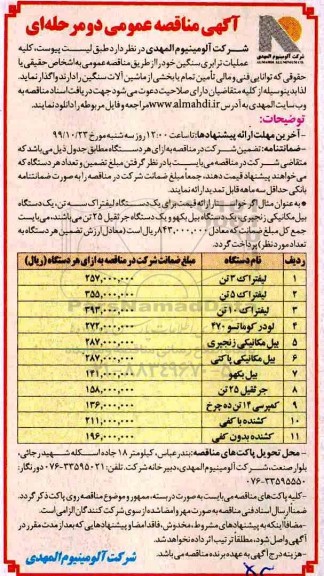 شرکت آلومینیوم المهدی
آگهی مناقصه عمومی دو مرحله‌ای
شرکت آلومینیوم المهدی در نظر دارد طبق لیست پیوست، کلیه
عملیات ترابری سنگین خود را از طریق مناقصه عمومی به اشخاص حقیقی یا
حقوقی که توانایی فنی و مالی تأمین تمام یا بخشی از ماشین آلات سنگین را دارند واگذار نماید.
لذا بدینوسیله از کلیه متقاضیان دارای صلاحیت دعوت می‌شود جهت دریافت اسناد مناقصه به
وب سایت المهدی به آدرس www.almahdi.ir مراجعه و فایل مربوطه را دانلود نمایند.
توضیحات:
- آخرین مهلت ارائه پیشنهادها: تا ساعت ۱۲:۰۰ روز سه شنبه مورخ ۹۹/۱۰/۲۳
- ضمانتنامه: تضمین شرکت در مناقصه به ازای هر دستگاه مطابق جدول ذیل می‌باشد که
متقاضی شرکت در مناقصه می‌بایست با در نظر گرفتن مبلغ تضمین و تعداد هر دستگاه که
می‌خواهند پیشنهاد قیمت دهند، جمعاً مبلغ ضمانت شرکت در مناقصه را به صورت ضمانتنامه
بانکی حداقل سه ماهه قابل تمدید ارائه نمایند.
● به عنوان مثال اگر خواستار ارائه قیمت برای یک دستگاه لیفتراک سه تن، یک دستگاه
بیل مکانیکی زنجیری، یک دستگاه بیل بکهو و یک دستگاه جرثقیل ۲۵ تن می‌باشند، می‌بایست
جمع کل مبلغ ضمانت که معادل ۸۴۳,۰۰۰,۰۰۰ ریال است (معادل ارزش تضمین هر دستگاه به
تعداد مورد نظر) پرداخت گردد.
ردیف نام دستگاه مبلغ ضمانت شرکت در مناقصه به ازای هر دستگاه (ریال)
۱ لیفتراک ۳ تن ۲۵۷,۰۰۰,۰۰۰
۲ لیفتراک ۵ تن ۳۵۵,۰۰۰,۰۰۰
۳ لیفتراک ۱۰ تن ۳۹۳,۰۰۰,۰۰۰
۴ لودر کوماتسو ۴۷۰ ۲۷۲,۰۰۰,۰۰۰
۵ بیل مکانیکی زنجیری ۲۸۷,۰۰۰,۰۰۰
۶ بیل مکانیکی پاکتی ۲۸۷,۰۰۰,۰۰۰
۷ بیل بکهو ۱۴۱,۰۰۰,۰۰۰
۸ جرثقیل ۲۵ تن ۱۵۸,۰۰۰,۰۰۰
۹ کمپرسی ۱۴ تن ده چرخ ۱۳۶,۰۰۰,۰۰۰
۱۰ کشنده با کفی ۲۱۱,۰۰۰,۰۰۰
۱۱ کشنده بدون کفی ۱۹۶,۰۰۰,۰۰۰
- محل تحویل پاکت‌های مناقصه: بندرعباس، کیلومتر ۱۸ جاده اسکله شهید رجائی،
بلوار صنعت، شرکت آلومینیوم المهدی، دبیرخانه شرکت. تلفن: ۳۳۵۹۵۰۲۱-۰۷۶ دورنگار:
۰۷۶-۳۳۵۹۵۵۵۰
- کلیه پاکت‌های مناقصه می‌بایست به صورت دربسته، ممهور و موضوع مناقصه روی پاکت ذکر گردد.
ضمناً ارسال اسناد فنی مناقصه به صورت مهر و امضا شده از سوی شرکت کنندگان الزامی است.
- مضافاً اینکه به پیشنهادهای مشروط، مخدوش، فاقد امضا و پیشنهادهایی که بعد از مدت مقرر در
آگهی واصل شود، مطلقاً ترتیب اثر داده نخواهد شد.
- هزینه درج آگهی به عهده برنده مناقصه می‌باشد.
شرکت آلومینیوم المهدی